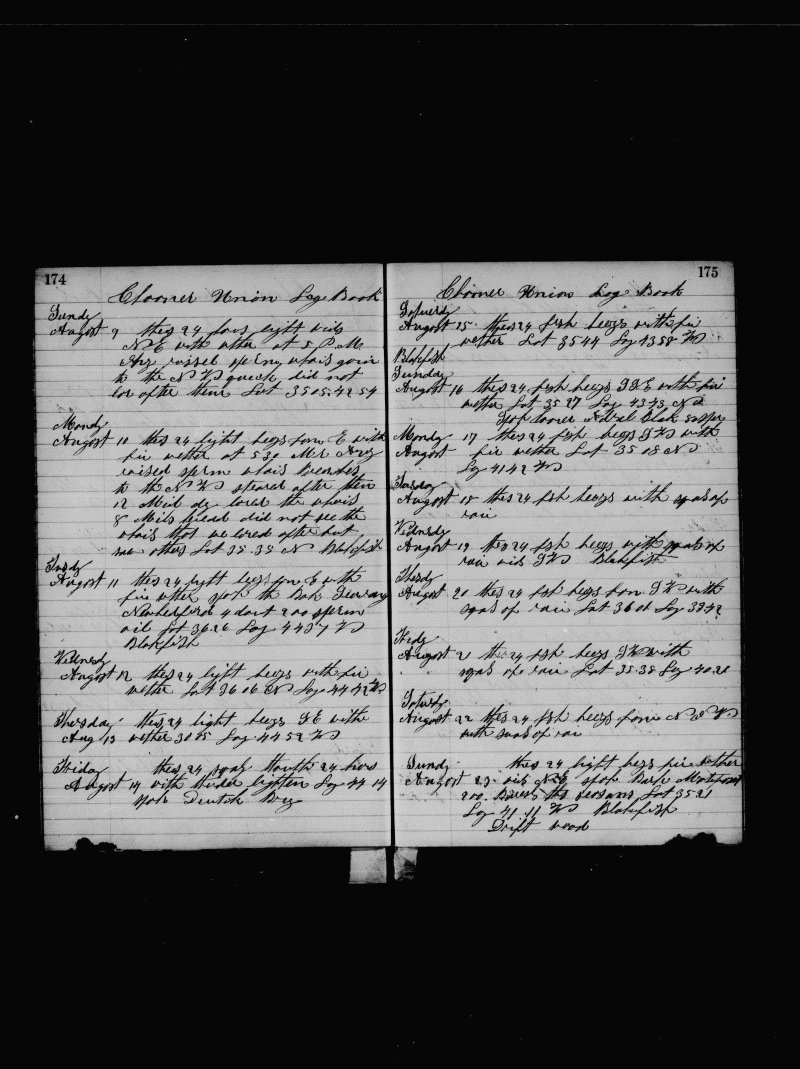 174
Clooner Union Log Book
Sundy
August 9 thes 24 hours light vids
N E with wether at 5 P. M.
Arg raised sperm whals goin
to the N W did not
lor after them Lat 35 05. 42 54
Mondy
August 10 thes 24 light beegs from E with
fir wether at 5 30 M Arg
raised sperm whals
to the N W after them
12 Mils lored the whals
8 Mils did not see the
whals that we lored after but
saw others Lat 35. 35 N Blakfish
Tusdy
August 11 thes 24 light beegs from E with
fir wether the Bark
4 200 sperm
oil Lat 36 26 Log 44 37 W
Blakfish
Wednsdy
August 12 thes 24 light beegs with fir
wether Lat 36 06 N Log 44 42 W
Thursday thes 24 light beegs S E with
Aug 13 wether Log 44 52 W
Friday thes 24 24 hors
August 14 with lighten Log 44 14
Brig
175
Clooner Union Log Book
Saturdy
August 15 thes 24 fresh beegs with fir
wether Lat 35 44 Log 43 58 W
Blakfish
Sunday
August 16 thes 24 fresh beegs S S E with fir
wether Lat 35 27 Log 43 43 N
looner
Monday 17 thes 24 fresh beegs S W with
August fir wether Lat 35 08 N
Log 41 42 W
Tusday
August 18 thes 24 fresh beegs with sqals of
rain
Wednsdy
August 19 thes 24 fresh beegs with sqals of
rain vid S W Blakfish
Thursdy
August 20 thes 24 fresh beegs from S W with
sqals of rain Lat 36 01 Log 39 42
Fridy
August 21 the 24 fresh beegs S W with
sqals of rain Lat 35. 38 Log 40 20
Saturdy
August 22 thes 24 fresh beegs from N W
with sqals of rain
Sundy thes 24 light beegs fir wether
August 23. vid N E Bark
200 Barels the Lat 35 21
Log 41. 11 W Blakfish
Drift wood